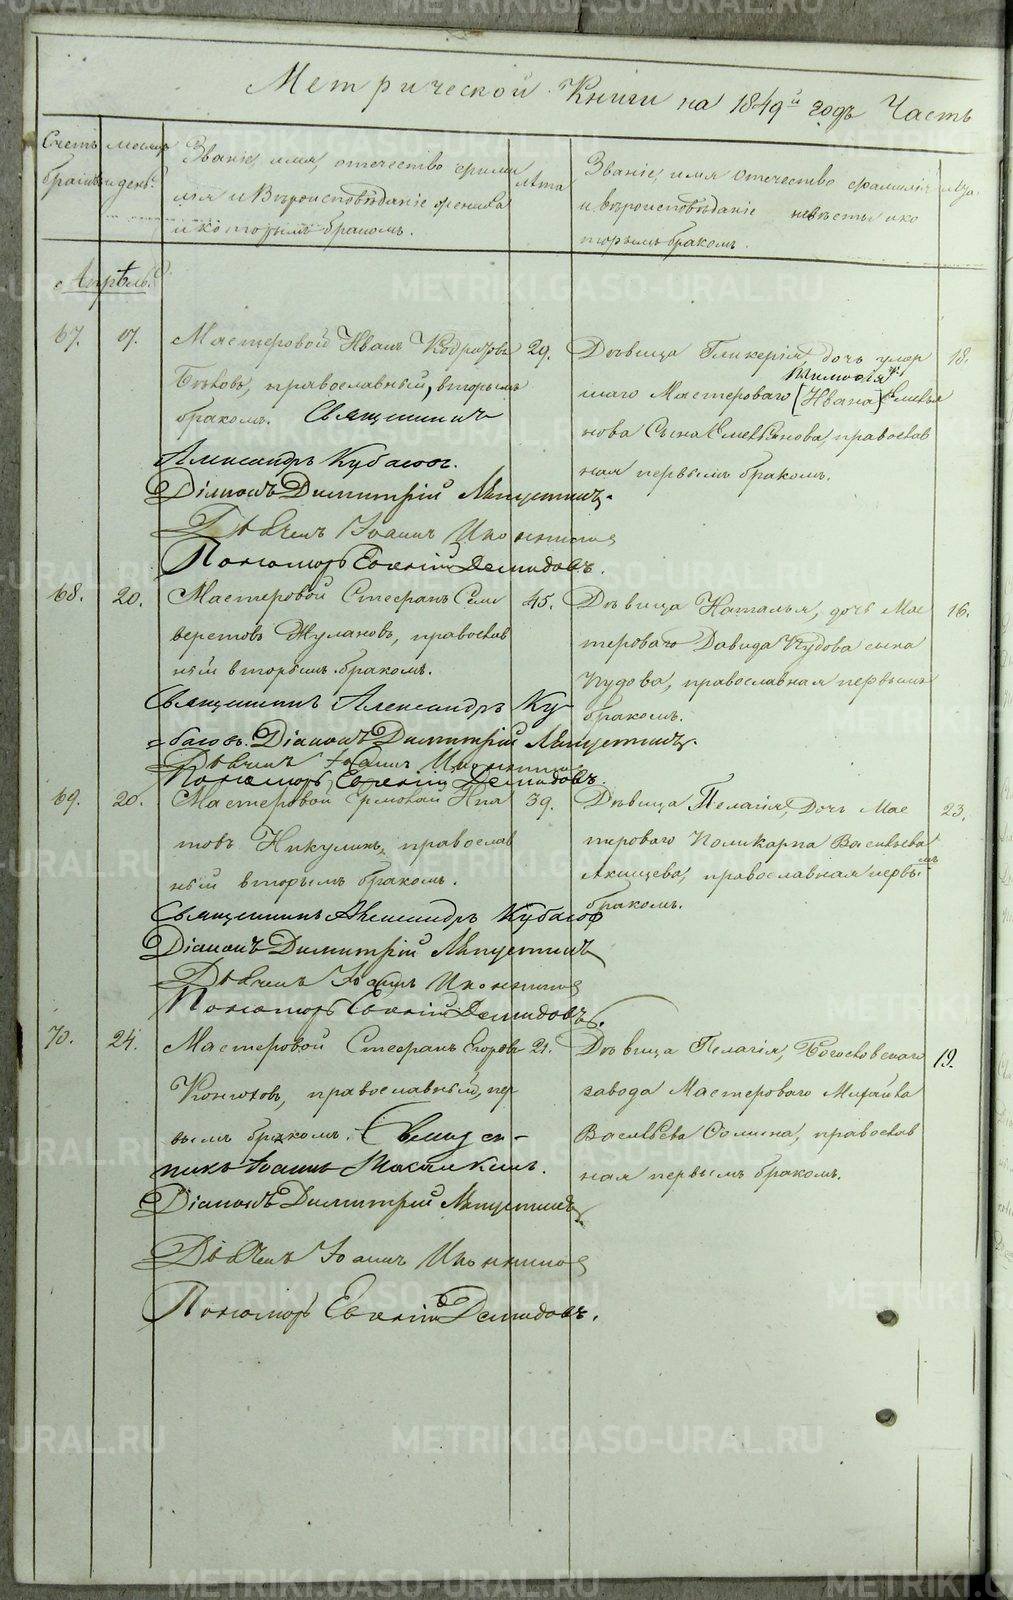 Метрической Книги на 1849й годъ Часть
Счетъ браковъ
месяцъ и день
Званіе, имя, отечество фами
лія и Вѣроисповѣданіе жениха
и которымъ бракомъ.
лѣта
Званіе, имя отечество фамилія
и вѣроисповѣданіе невѣсты и ко
торымъ бракомъ.
Апрѣль.
67.
17.
Мастеровой Иванъ
православный, вторымъ
бракомъ. Священникъ
Александръ Кубасовъ.
Діаконъ Димитрій
Дьячекъ Іоаннъ
Пономарь Евгеній Демидовъ.
29.
Дѣвица Гликерія, дочь умер
шаго Мастероваго [Ивана] Тимофея Емелья
нова сына Емельянова, православ
ная первымъ бракомъ.
18.
68.
20.
Мастеровой Стефанъ Сели
верстовъ Жулановъ, православ
ный вторымъ бракомъ.
Священникъ Александръ Ку-
басовъ. Діаконъ Димитрій
Дьячекъ Іоаннъ
Пономарь Евгеній Демидовъ.
45.
Дѣвица Наталья, дочь Мас
тероваго Давида Пудова сына
Пудова, православная первымъ
бракомъ.
16.
69.
20.
Мастеровой Ермолай Ипа
товъ Никулинъ, православ
ный вторымъ бракомъ.
Священникъ Александръ Кубасов
Діаконъ Димитрій
Дьячекъ Іоаннъ
Пономарь Евгеній Демидовъ.
39.
Дѣвица Пелагія, Дочь Мас
тероваго Поликарпа Васильева
православная первы
мъ
бракомъ.
23.
70.
24.
Мастеровой Стефанъ Егоровъ
Конюховъ, православный, пер
вымъ бракомъ. Священ
никъ Іоаннъ
Діаконъ Димитрій
Дьячекъ Іоаннъ
Пономарь Евгеній Демидовъ.
21.
Дѣвица Пелагія, Богословскаго
завода Мастероваго Михайла
Васильева православ
ная первымъ бракомъ.
19.
METRIKI.GASO-URAL.RU